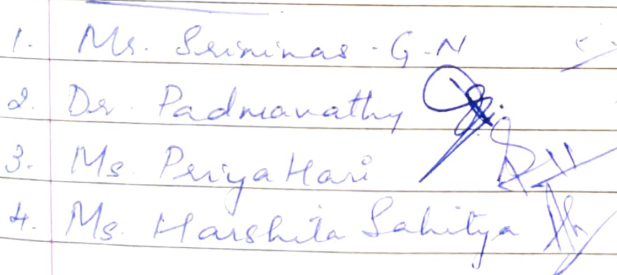 1. Mr. Srinivas - G. N
2. Dr. Padmavathy
3. Ms. Priya Hari
4. Ms. Harshita Sahitya